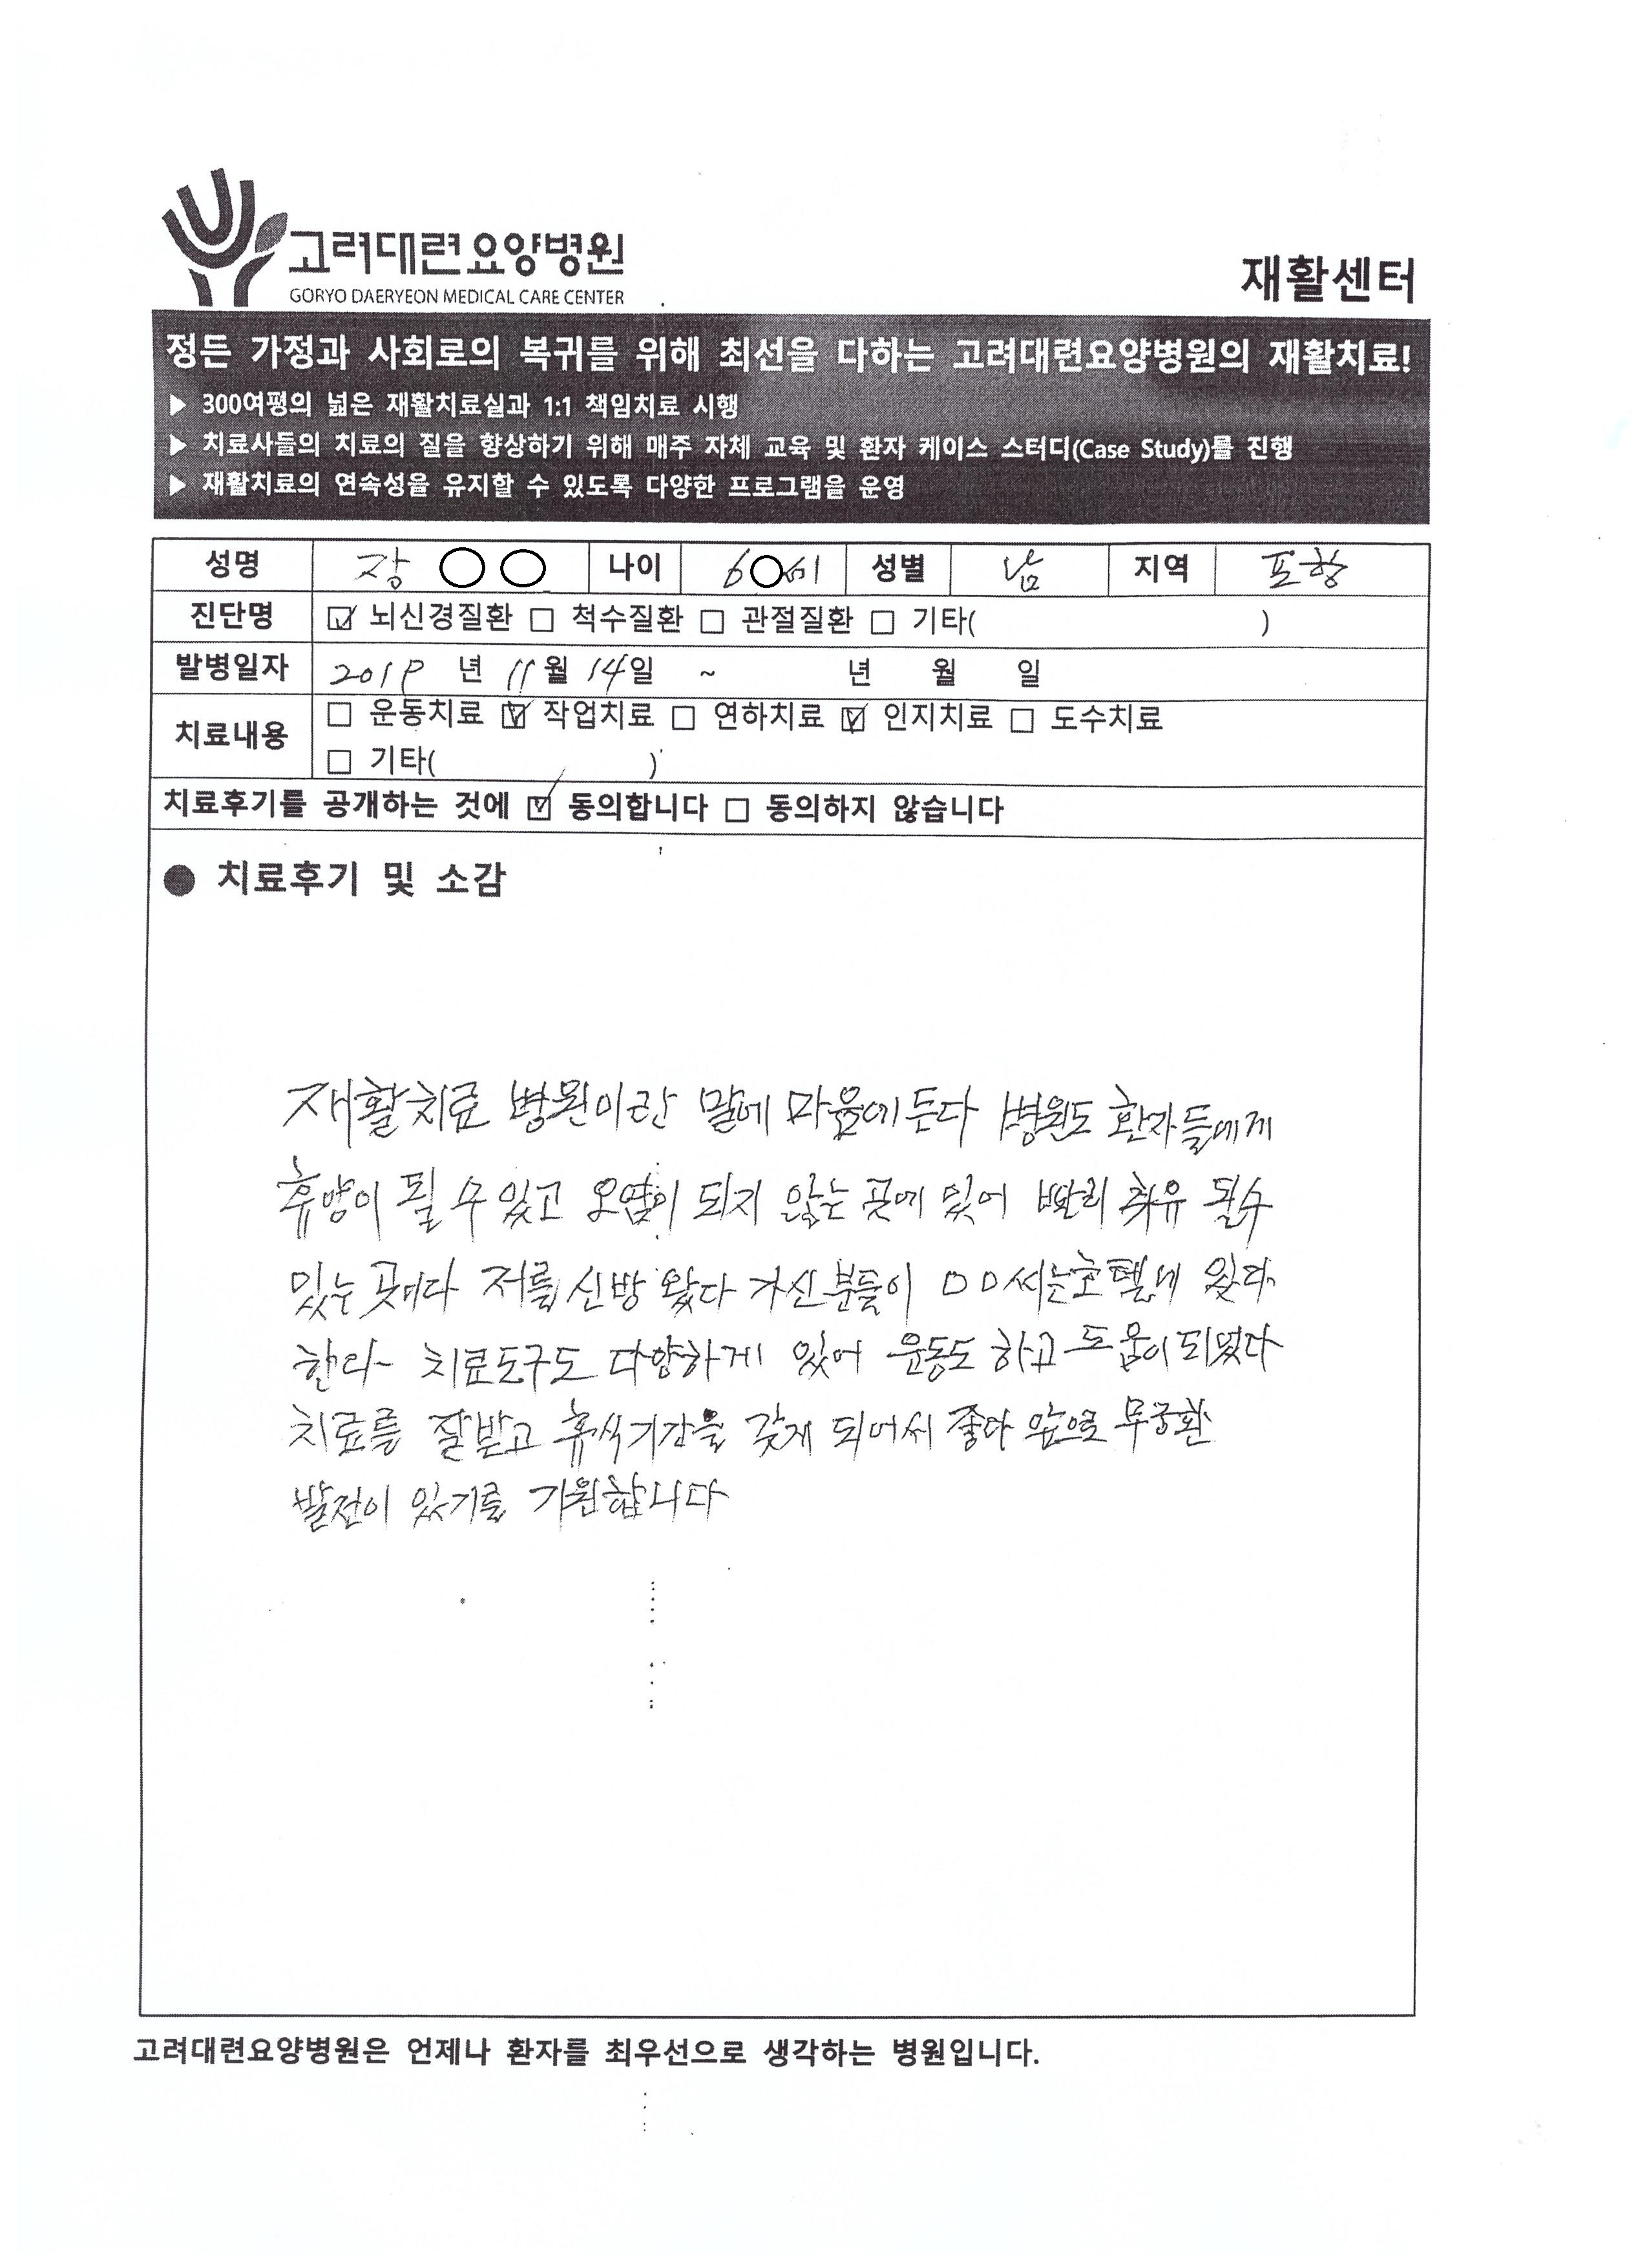 고려대련요양병원
GORYO DAERYEON MEDICAL CARE CENTER
재활센터
정든 가정과 사회로의 복귀를 위해 최선을 다하는 고려대련요양병원의 재활치료!
▶ 300여평의 넓은 재활치료실과 1:1 책임치료 시행
▶ 치료사들의 치료의 질을 향상하기 위해 매주 자체 교육 및 환자 케이스 스터디(Case Study)를 진행
▶ 재활치료의 연속성을 유지할 수 있도록 다양한 프로그램을 운영
성명 장 ○ ○ 나이 6○세 성별 남 지역 포항
진단명 ☑ 뇌신경질환 □ 척수질환 □ 관절질환 □ 기타( )
발병일자 2019 년 11월 14일 ~ 년 월 일
치료내용 □ 운동치료 ☑ 작업치료 □ 연하치료 ☑ 인지치료 □ 도수치료
□ 기타( )
치료후기를 공개하는 것에 ☑ 동의합니다 □ 동의하지 않습니다
● 치료후기 및 소감
재활치료 병원이란 말에 마음에 든다 병원도 환자들에게
휴양이 될 수 있고 오염이 되지 않는 곳에 있어 빨리 취유 될수
있는 곳이다 저를 신방 왔다 가신분들이 ○○씨는호텔에 있다
한다 치료도구도 다양하게 있어 운동도 하고 도움이 되었다
치료를 잘받고 휴식기간을 갖게 되어서 좋다 앞으로 무궁환
발전이 있기를 기원합니다
고려대련요양병원은 언제나 환자를 최우선으로 생각하는 병원입니다.